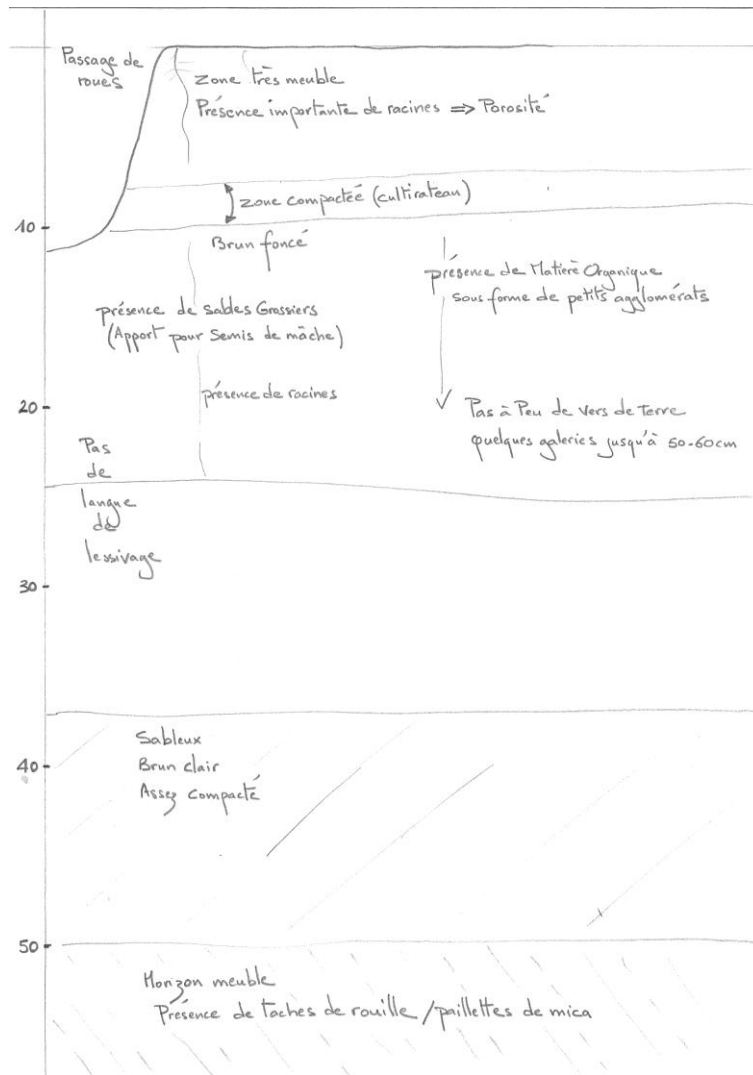 Passage de
roues
Zone très meuble
Présence importante de racines => Porosité
zone compactéé (cultirateau)
10
Brun foncé
présence de Matière Organique
sous forme de petits agglomérats
présence de sables Grossiers
(Apport pour Semis de mâche)
présence de racines
20
Pas à Peu de vers de terre
quelques galeries jusqu'à 50-60cm
Pas
de
langue
de
lessivage
30
Sableux
Brun clair
Assez compacté
40
50
Horizon meuble
Présence de taches de rouille /paillettes de mica